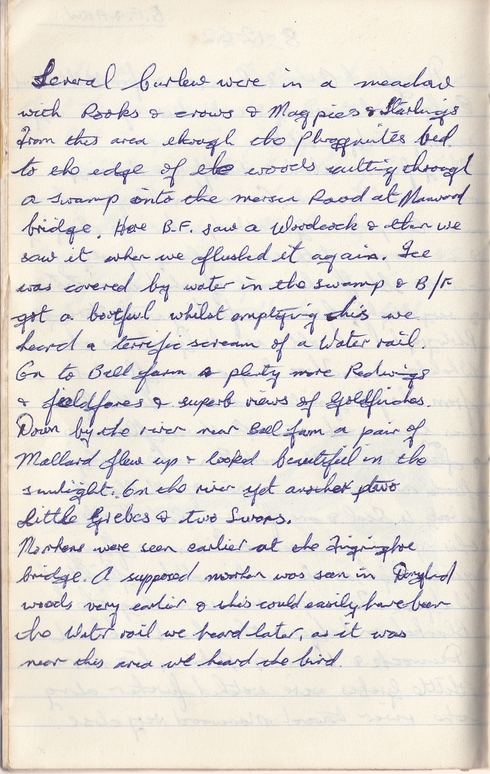 Several Curlew were in a meadow
with Rooks & crows & Magpies & Starlings
From this area through the Phragmites bed
to the edge of the woods cutting through
a swamp onto the mersea Road at Manwood
bridge. Here B.F. saw a Woodcock & then we
saw it when we flushed it again. Ice
was covered by water in the swamp & B/F
got a bootful whilst emptying this we
heard a terrific scream of a Water rail.
On to Ball farm & plenty more Redwings
& fieldfares & superb views of Goldfinches.
Down by the river near Ball farm a pair of
Mallard flew up & looked beautiful in the
sunlight. On the river yet another two
Little Grebes & two Swans.
Morhens were seen earlier at the Fingringhoe
bridge. A supposed morhen was seen in
woods very earlier & this could easily have been
the Water rail we heard later, as it was
near this area we heard the bird.